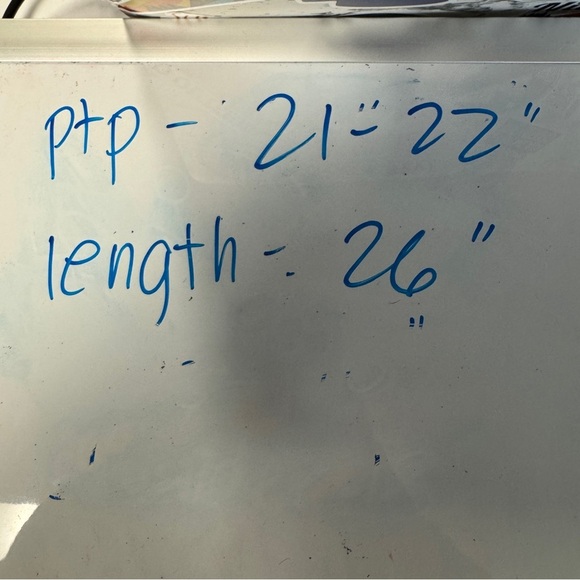 ptp - 21"-22"
length - 26"